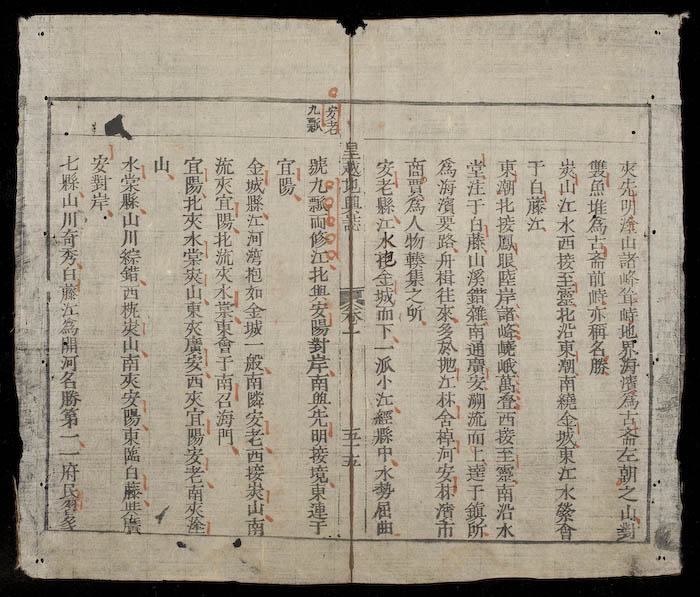 夾先明塗山諸峰聳峙地界海濱為古齋左朝之山對
雙魚堆為古斎前峙亦稱名勝
炭山江水西接至靈北沿東潮南繞金城東江水縈會
于白藤江
東潮北接鳳眼陸岸諸峰嶢峨萬叠西接至靈南沿水
堂注于白藤山溪錯雜南通廣安潮流而上達于鎮所
為海濱要路舟楫往來多於地江林舍棹河安林濱市
商賈為人物輳集之所
安老縣江水抱金城而下一派小江經縣中水勢屈曲
皇越地輿誌
卷一
五十五
安老
九瓢
號九瓢而修江北與安陽對岸南與先明接境東連于
宜陽
金城縣江河灣抱如金城一般南隣安老西接炭山南
流夾宜陽北流夾水棠東會于南召海門
宜陽北夾水棠炭山東夾廣安西夾宜陽安老南夾塗
山
水棠縣山川綜錯西枕炭山南夾安陽東臨白藤與廣
安對岸
七縣山川奇秀白藤江為關河名勝第一一府民